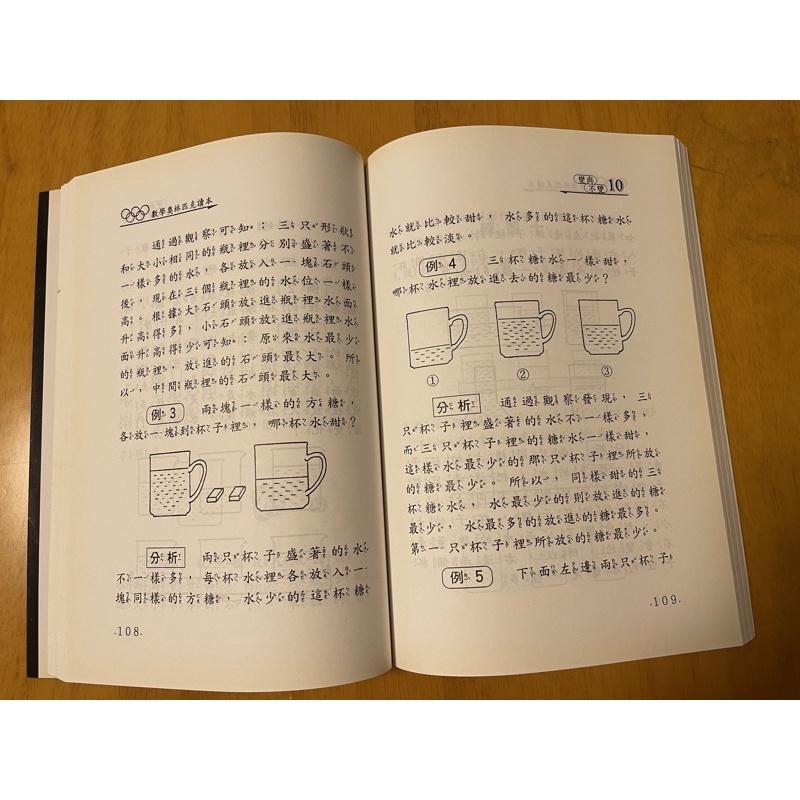 數學奧林匹克讀本
通過觀察可知：三只形狀
和大小相同的瓶裡分別盛著不
一樣多的水，各放入一塊石頭
後，現在三個瓶裡的水位一樣
高。根據大石頭放進瓶裡水面
升高得多，小石頭放進瓶裡水
面升高得少可知：原來水最少
的瓶裡，放進的石頭最大。所
以，中間瓶裡的石頭最大。
例 3 兩塊一樣的方糖，
各放一塊到杯子裡，哪杯水甜？
分析 兩只杯子盛著的水
不一樣多，每杯水裡各放入一
塊同樣的方糖，水少的這杯糖
.108.
變與
不變 10
水就比較甜，水多的這杯糖水
就比較淡。
例 4 三杯糖水一樣甜，
哪杯水裡放進去的糖最少？
① ② ③
分析 通過觀察發現，三
只杯子裡盛著的水不一樣多，
而三只杯子裡的糖水一樣甜，
這樣水最少的那只杯子裡所放
的糖最少。所以，同樣甜的三
杯糖水，水最少的則放進的糖
最少，水最多的放進的糖最多。
第一只杯子裡所放的糖最少。
例 5 下面左邊兩只杯子
.109.